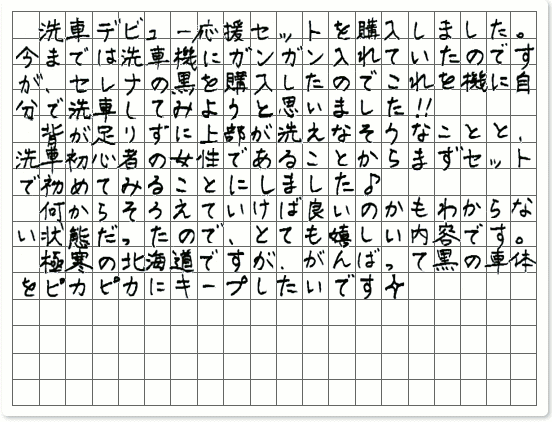 洗車デビュー応援セットを購入しました。
今までは洗車機にガンガン入れていたのです
が、セレナの黒を購入したのでこれを機に自
分で洗車してみようと思いました!!
背が足りずに上部が洗えなそうなことと、
洗車初心者の女性であることからまずセット
で初めてみることにしました♪
何からそろえていけば良いのかもわからな
い状態だったので、とても嬉しい内容です。
極寒の北海道ですが、がんばって黒の車体
をピカピカにキープしたいです☆